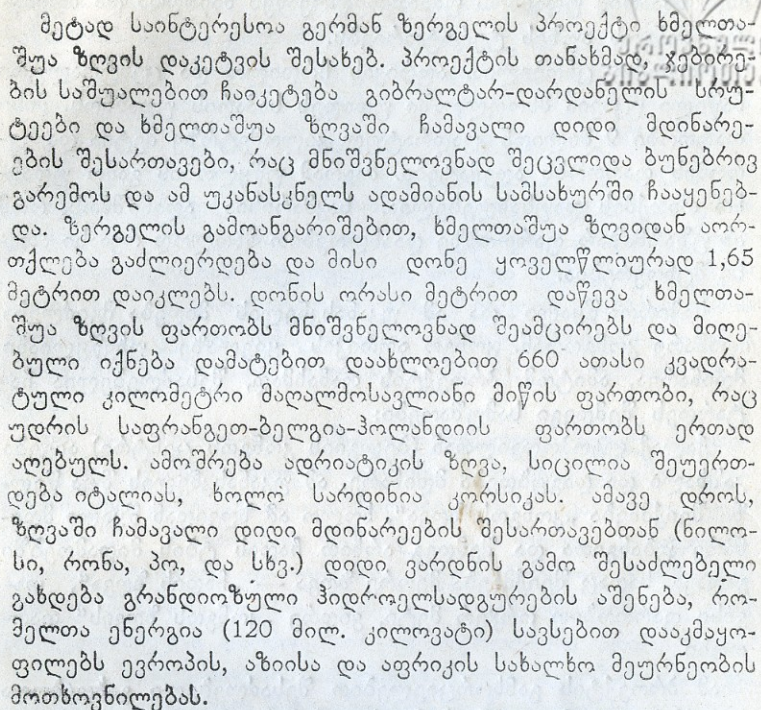 მეტად საინტერესოა გერმან ზერგელის პროექტი ხმელთა-
შუა ზღვის დაკეტვის შესახებ. პროექტის თანახმად, ჯებირე-
ბის საშუალებით ჩაიკეტება გიბრალტარ-დარდანელის სრუ-
ტეები და ხმელთაშუა ზღვაში ჩამავალი დიდი მდინარე-
ების შესართავები, რაც მნიშვნელოვნად შეცვლიდა ბუნებრივ
გარემოს და ამ უკანასკნელს ადამიანის სამსახურში ჩააყენებ-
და. ზერგელის გამოანგარიშებით, ხმელთაშუა ზღვიდან აორ-
თქლება გაძლიერდება და მისი დონე ყოველწლიურად 1,65
მეტრით დაიკლებს. დონის ორასი მეტრით დაწევა ხმელთა-
შუა ზღვის ფართობს მნიშვნელოვნად შეამცირებს და მიღე-
ბული იქნება დამატებით დაახლოებით 660 ათასი კვადრა-
ტული კილომეტრი მაღალმოსავლიანი მიწის ფართობი, რაც
უდრის საფრანგეთ-ბელგია-ჰოლანდიის ფართობს ერთად
აღებულს. ამოშრება ადრიატიკის ზღვა, სიცილია შეუერთ-
დება იტალიას, ხოლო სარდინია კორსიკას. ამავე დროს,
ზღვაში ჩამავალი დიდი მდინარეების შესართავებთან (ნილო-
სი, რონა, პო, და სხვ.) დიდი ვარდნის გამო შესაძლებელი
გახდება გრანდიოზული ჰიდროელსადგურების აშენება, რო-
მელთა ენერგია (120 მილ. კილოვატი) სავსებით დააკმაყო-
ფილებს ევროპის, აზიისა და აფრიკის სახალხო მეურნეობის
მოთხოვნილებას.